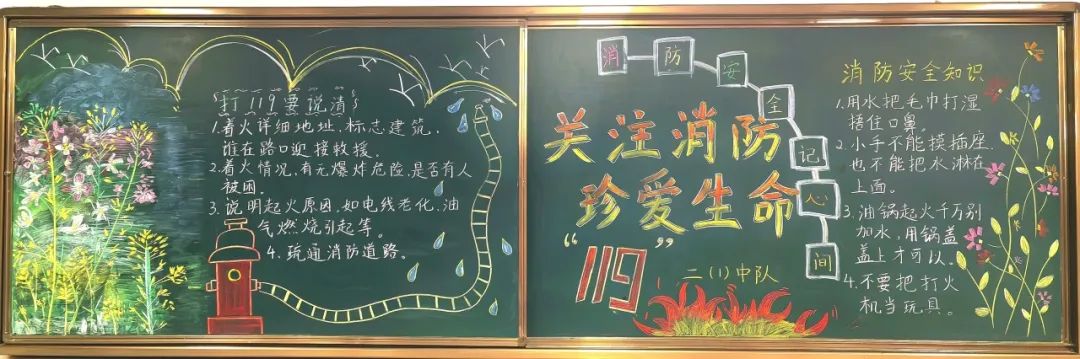 打119要说清
1.着火详细地址,标志建筑,
谁在路口迎接救援。
2.着火情况,有无爆炸危险,是否有人
被困。
3.说明起火原因,如电线老化,油
气燃烧引起等。
4.疏通消防道路。
消防安全记心间
关注消防
珍爱生命
“119”
二(1)中队
消防安全知识
1.用水把毛巾打湿
捂住口鼻。
2.小手不能摸插座.
也不能把水淋在
上面。
3.油锅起火千万别
加水,用锅盖
盖上才可以。
4.不要把打火
机当玩具。